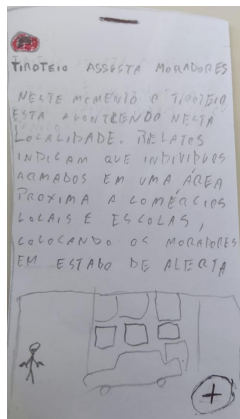 TIROTEIO ASSUSTA MORADORES
NESTE MOMENTO O TIROTEIO
ESTA ACONTECENDO NESTA
LOCALIDADE. RELATOS
INDICAM QUE INDIVIDUOS
ARMADOS EM UMA ÁREA
PROXIMA A COMÉRCIOS
LOCAIS E ESCOLAS,
COLOCANDO OS MORADORES
EM ESTADO DE ALERTA
+